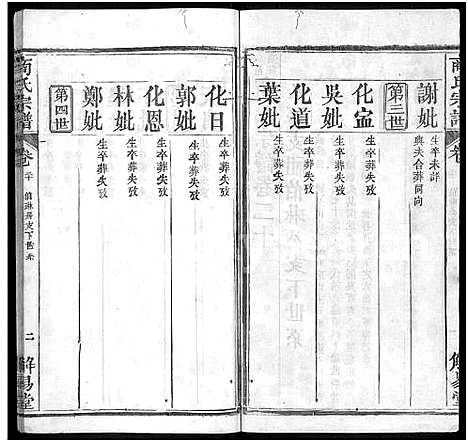 謝妣
生卒未詳
與夫合葬同向
第三世
化宝
生卒葬失攷
吳妣
生卒葬失攷
化道
生卒葬失攷
葉妣
生卒葬失攷
解易堂
化日
生卒葬失攷
郭妣
生卒葬失攷
化恩
生卒葬失攷
林妣
生卒葬失攷
鄭妣
生卒葬失攷
第四世
商氏宗譜
卷
二
解易堂